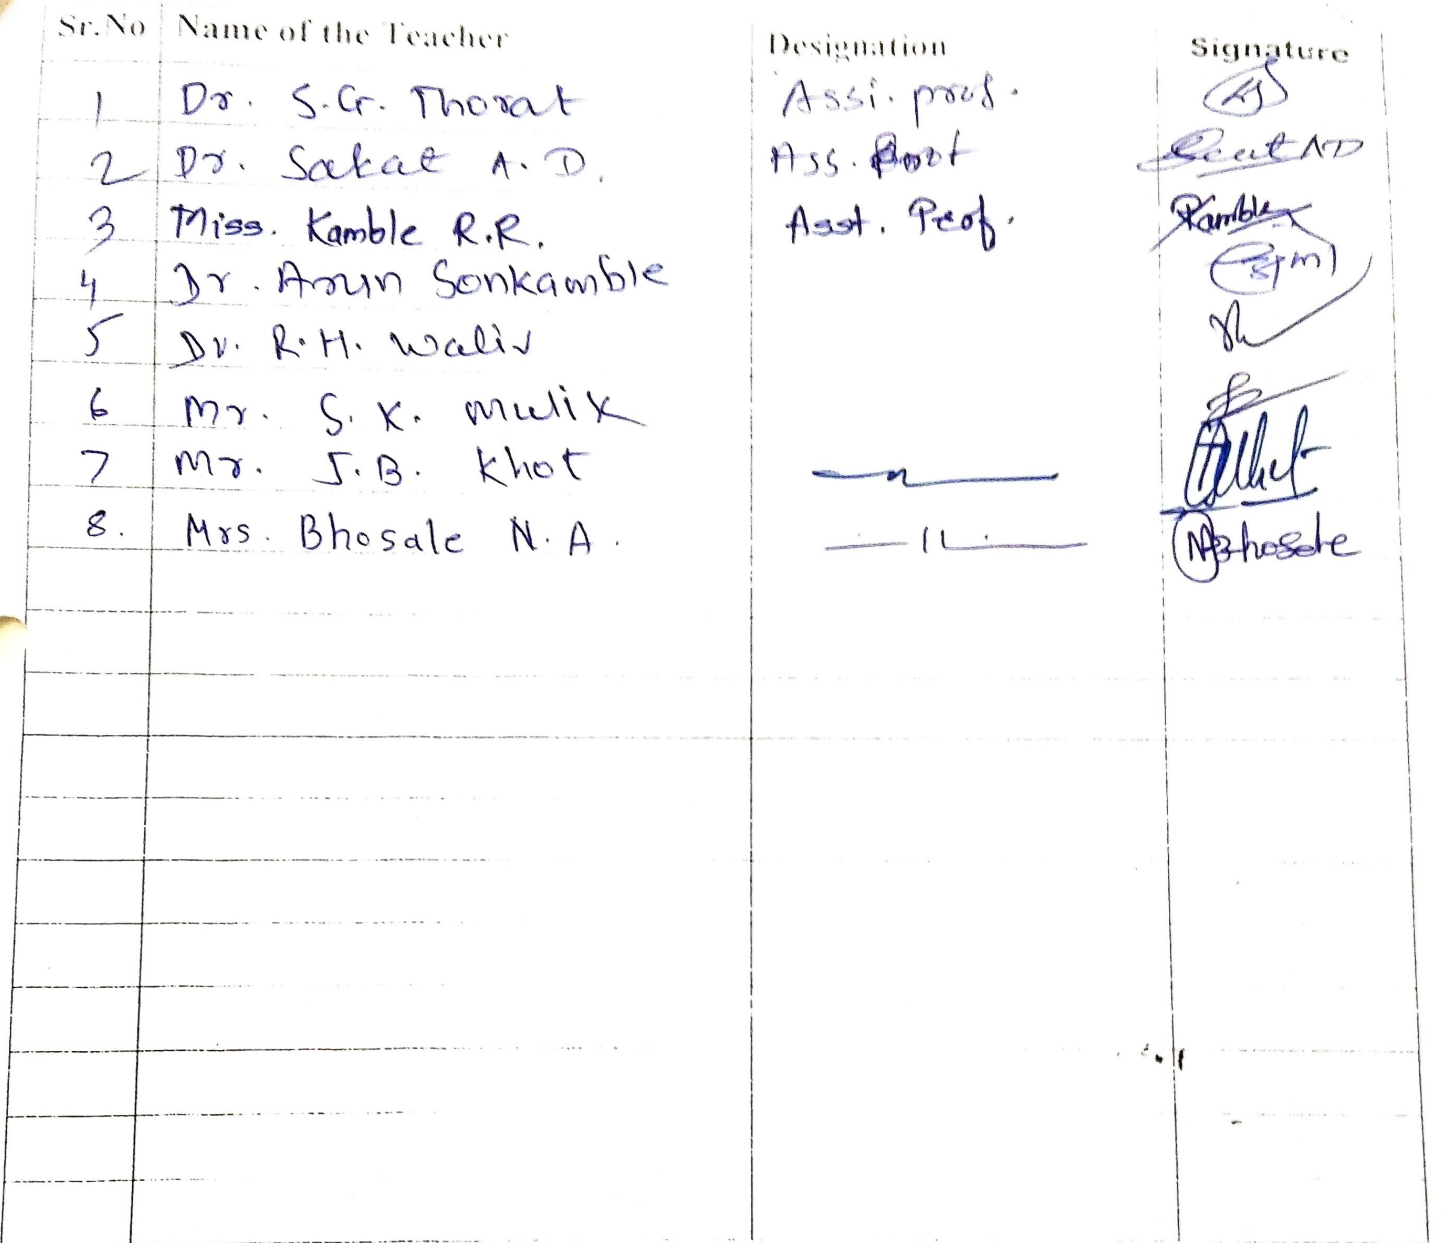 Sr.No Name of the Teacher Designation Signature
1 Dr. S.G. Thorat Assi. prof.
2 Dr. Sakat A. D. Ass.
3 Miss. Kamble R.R. Asst. Prof. Kamble
4 Dr. Arun Sonkamble
5 Dr. R.H. Waliv
6 Mr. S. K. Mulik
7 Mr. J.B. Khot
8. Mrs. Bhosale N. A. — 11 — NABhosale